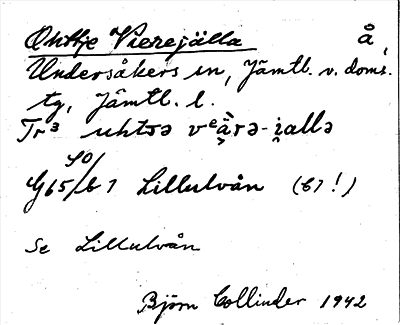 Ohttje Vierejälla å,
Undersåkers sn, Jämtl. v. doms.
tg, Jämtl. l.
Tr³ uhtsə vᵉὰ̣rə-i̯allə
50
G65/b7 Lillulvån (b7!)
Se Lillulvån
Björn Collinder 1942